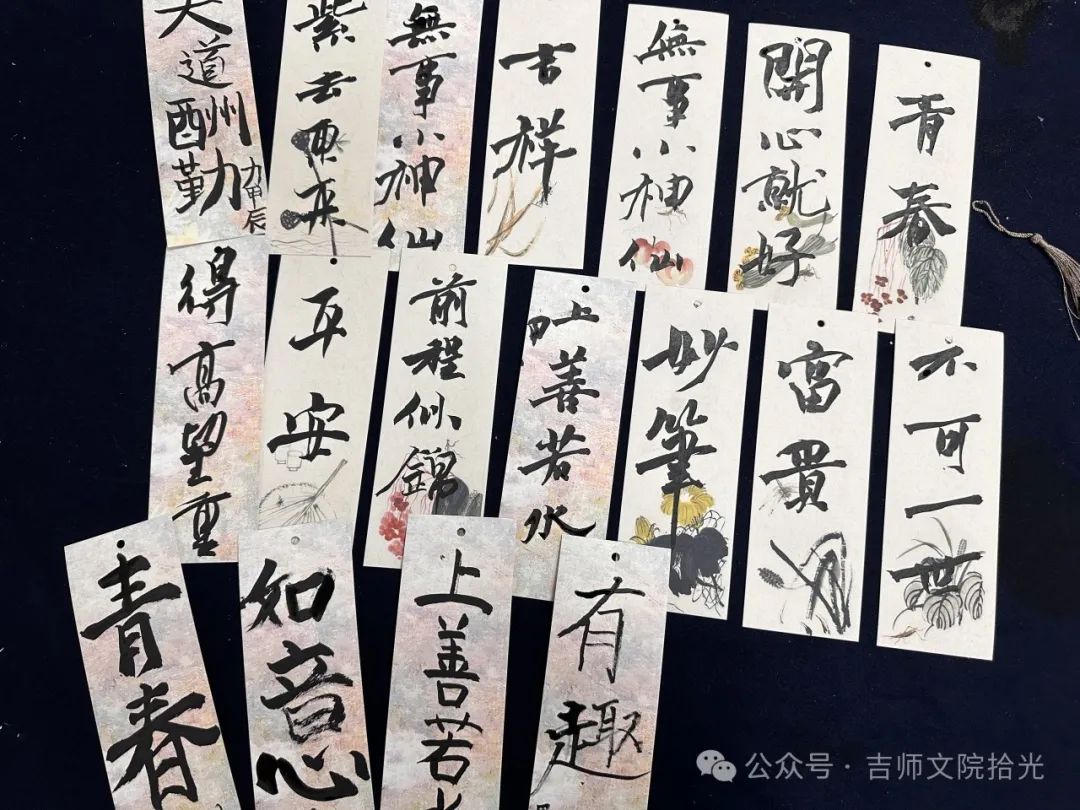 天道酬勤
甲辰
紫東来
無事小神仙
吉祥
無事小神仙
開心就好
青春
得高望重
平安
前程似錦
上善若水
妙筆
富貴
不可一世
青春
如意
上善若水
有趣
公众号·吉师文院拾光